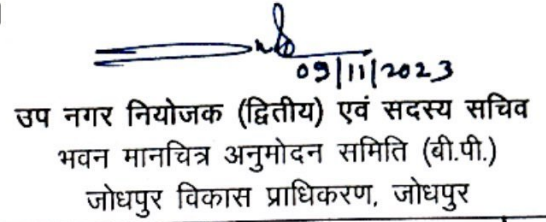 09/11/2023
उप नगर नियोजक (द्वितीय) एवं सदस्य सचिव
भवन मानचित्र अनुमोदन समिति (बी.पी.)
जोधपुर विकास प्राधिकरण, जोधपुर